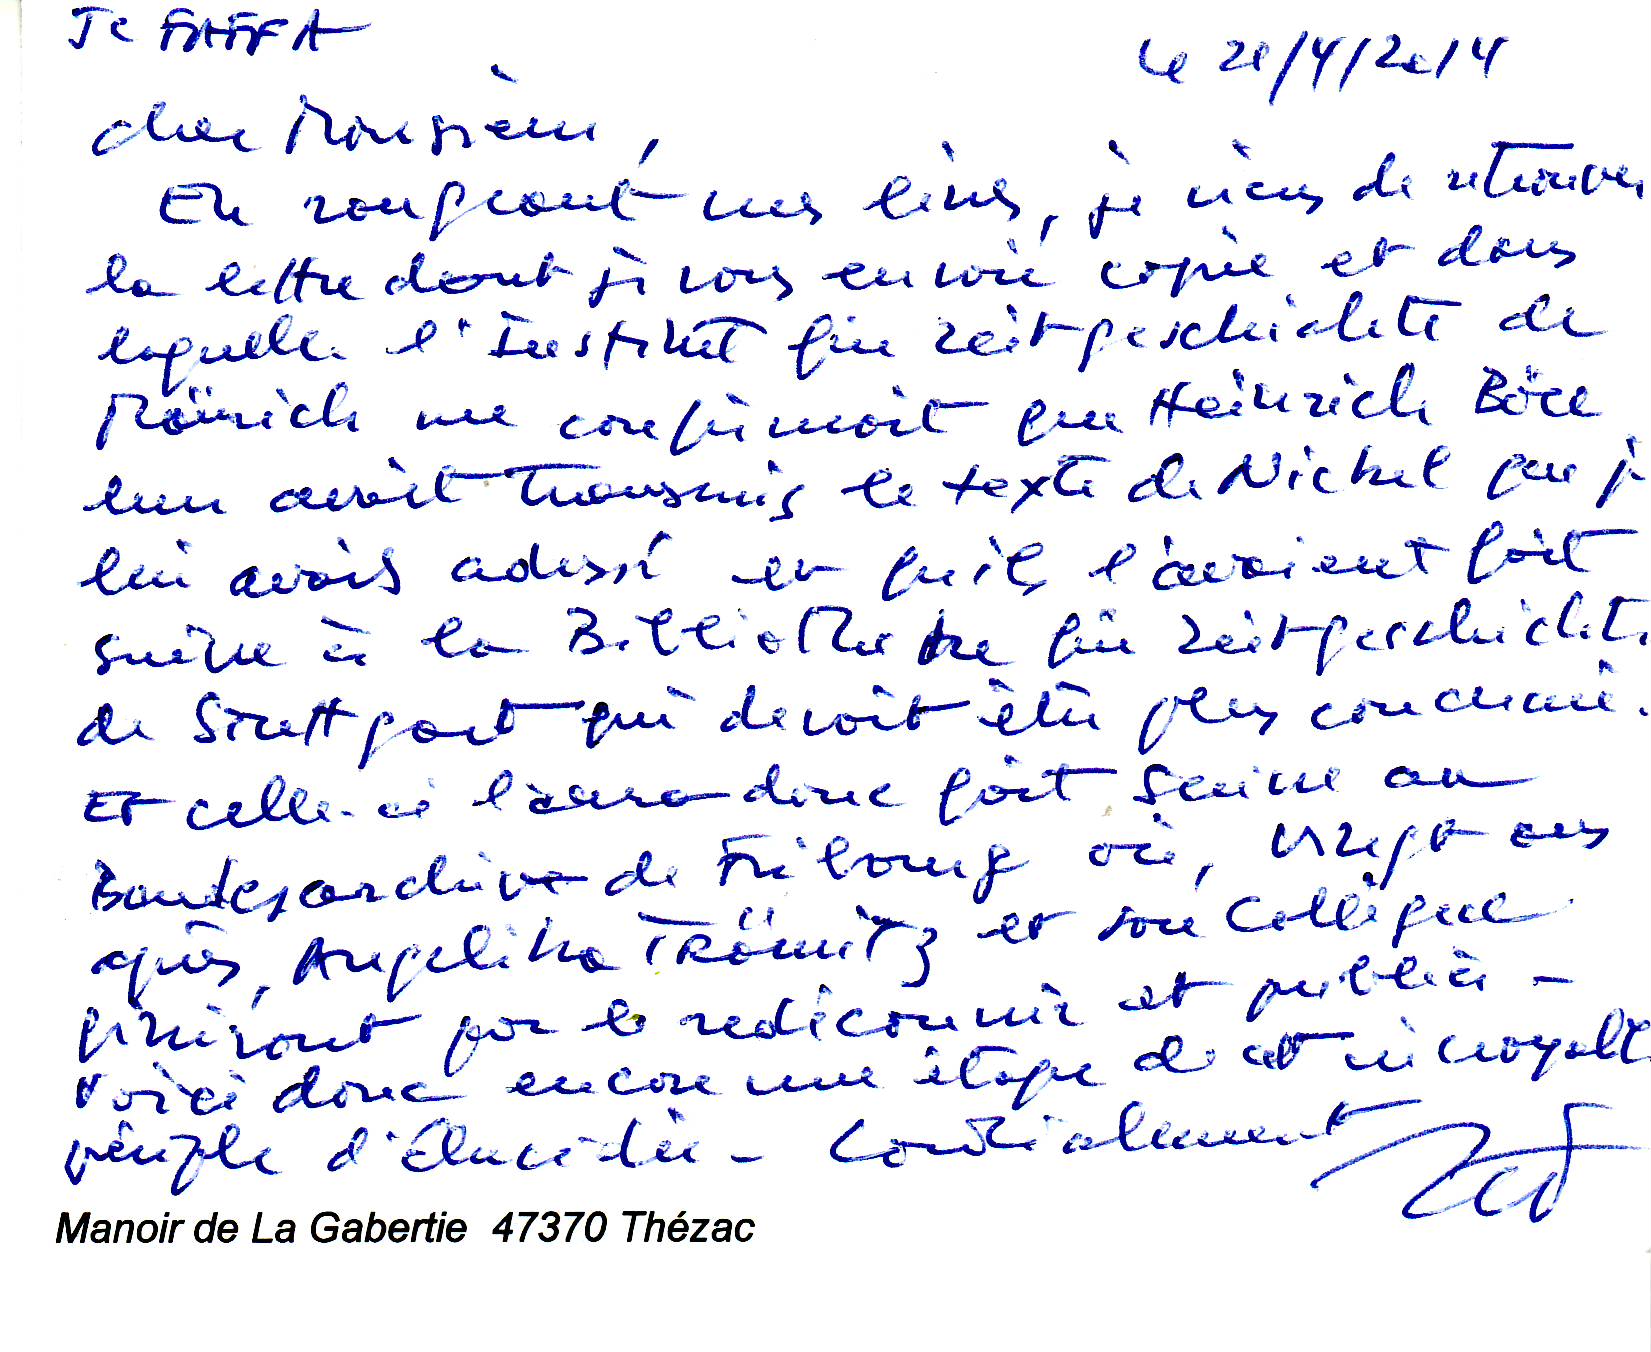 Le 20/4/2014
Cher Monsieur,
En rangeant mes livres, je viens de retrouver
la lettre dont je vous envoie copie et dans
laquelle l'Institut für Zeitgeschichte de
München me confirmait que Heinrich Böll
leur avait transmis le texte de Nickel que je
lui avais adressé et qu'ils l'avaient fait
suivre à la Bibliothek für Zeitgeschichte
de Stuttgart qui devait être plus concernée.
Et celle-ci l'aura donc fait suivre au
Bundesarchive de Fribourg où, vingt ans
après, Angelika Trömitz et son collègue
finiront par le redécouvrir et publier -
Voici donc encore une étape de cet incroyable
périple d'élucidée - Cordialement
Manoir de La Gabertie 47370 Thézac